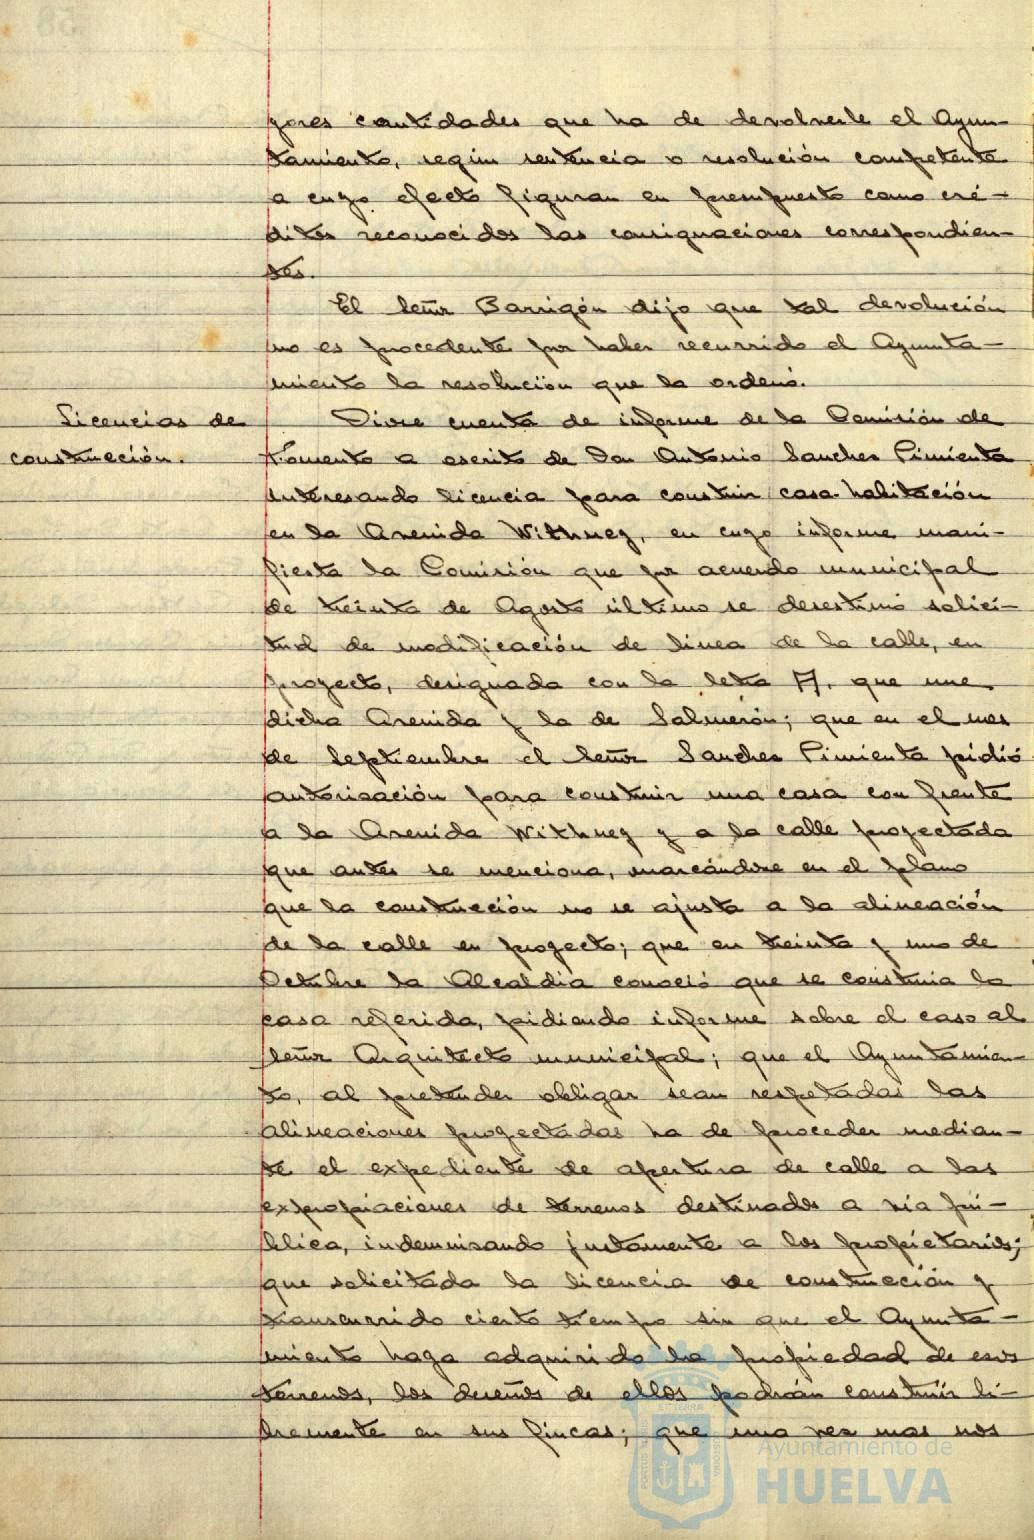 yores cantidades que ha de devolverle el Ayun-
tamiento, según sentencia o resolución competente
a cuyo efecto figuran en presupuesto como cré-
ditos reconocidos las consignaciones correspondien-
tes.
El Señor Barrigón dijo que tal devolución
no es procedente por haber recurrido el Ayunta-
miento la resolución que la ordenó.
Licencias de
construcción.
Diose cuenta de informe de la Comisión de
Fomento a escrito de Don Antonio Sanchez Pimienta
interesando licencia para construir casa-habitación
en la Avenida Withney, en cuyo informe mani-
fiesta la Comisión que por acuerdo municipal
de treinta de Agosto último se desestimó solici-
tud de modificación de linea de la calle, en
proyecto, designada con la letra A, que une
dicha Avenida y la de Salmerón; que en el mes
de Septiembre el Señor Sanchez Pimienta pidió
autorización para construir una casa con frente
a la Avenida Withney y a la calle proyectada
que antes se menciona, marcándose en el plano
que la construcción no se ajusta a la alineación
de la calle en proyecto; que en treinta y uno de
Octubre la Alcaldia conoció que se construia la
casa referida, pidiendo informe sobre el caso al
Señor Arquitecto municipal; que el Ayuntamien-
to, al pretender obligar sean respetadas las
alineaciones proyectadas ha de proceder median-
te el expediente de apertura de calle a las
expropiaciones de terrenos destinados a via pú-
blica, indemnizando justamente a los propietarios;
que solicitada la licencia de construcción y
transcurrido cierto tiempo sin que el Ayunta-
miento haya adquirido la propiedad de esos
terrenos, los dueños de ellos podrán construir li-
bremente en sus fincas; que una vez mas nos
Ayuntamiento de
HUELVA